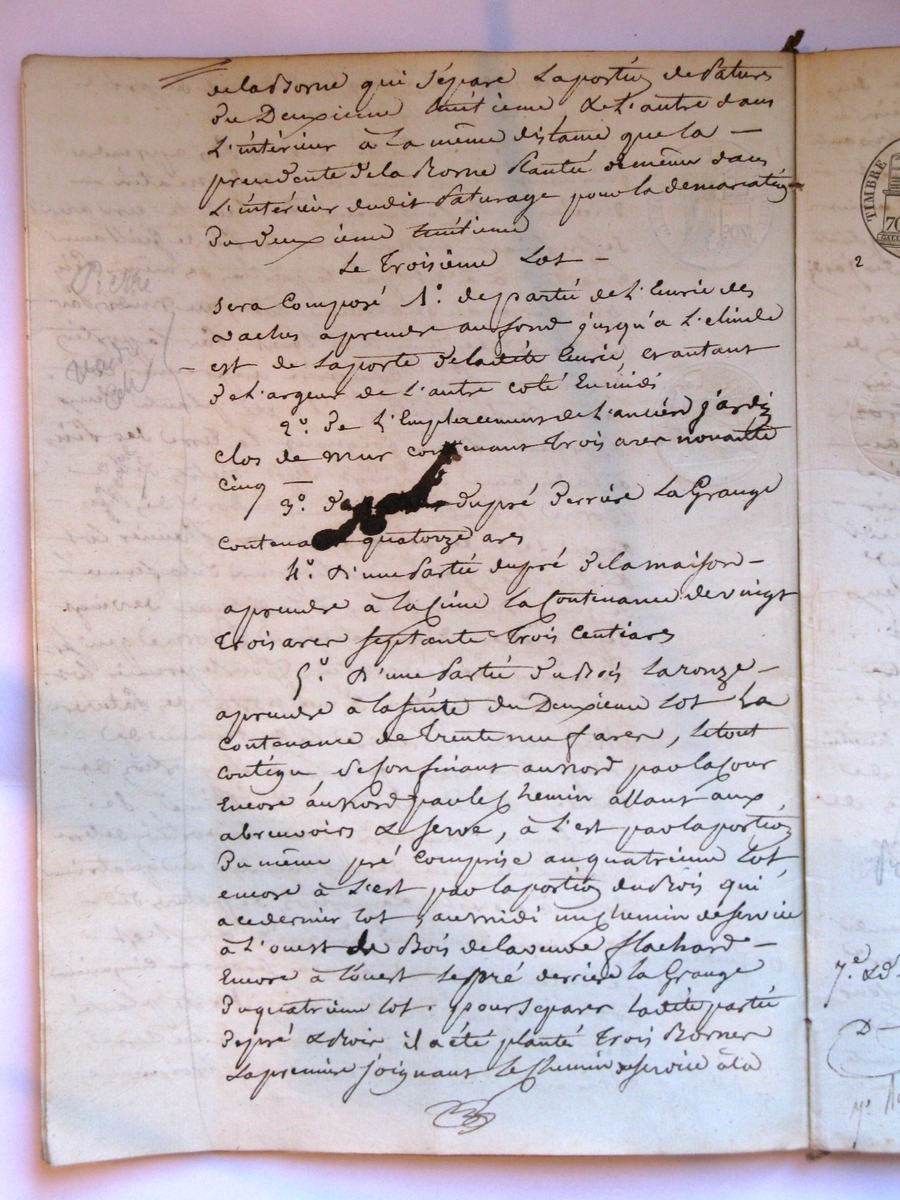 dela Borne qui Sépare La portion de Pature
Du Deuxieme huitieme & L'autre dans
L'intérieur à La même distance que la —
precedente de la Borne Planté de même dans
L'intérieur dudit Paturage pour la demarcation
Du deuxieme huitieme
Le Troisieme Lot —
sera Composé 1°. de partie de L'Ecurie des
vaches aprendre au fond jusqu'a L'
est de La porte de ladite Ecurie, et autant
de Largeur de L'autre coté En midi
2°. De L'Emplacement de L'ancien jardin
clos de mur contenant trois ares nonante
cinq —
3°. du pré Derriere La Grange
contenant quatorze ares
4°. D'une Partie du pré de la maison —
aprendre à la Cime la Contenance de vingt
trois ares septante trois Centiares
5°. D'une Partie du Bois Laronze —
aprendre à la suite du Deuxieme Lot La
Contenance de trente neuf ares, le tout
contigu se Confinant au Nord par la Cour
Encore au Nord par le Chemin allant aux
abreuvoirs & serve, à l'est par la portion
Du même pré Comprise au quatrieme Lot
encore à L'est par la portion du Bois qui
a ce dernier lot, au midi un Chemin de service
à L'ouest le Bois de la veuve flachard —
Encore à l'ouest le pré derriere la Grange
Du quatrieme lot. pour separer Ladite partie
De pré & Bois il a été planté trois Bornes
La premiere joignant le Chemin de service à la
TIMBRE
2
7.e